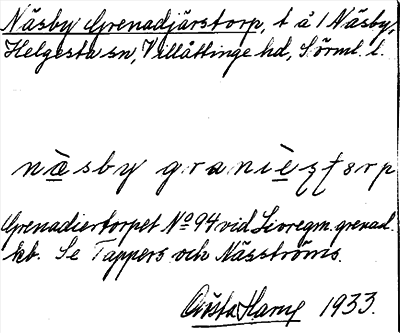 Näsby Grenadjärstorp, t å 1 Näsby,
Helgesta sn, Villåttinge hd, Sörml. l.
näsby graniè torp
Grenadiertorpet No 94 vid Livregm. grenad.
kb. Se Tappers och Näsströms.
Gösta Harnf 1933.